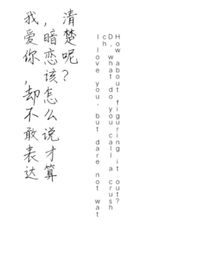 我爱你,却不敢表达
,暗恋该怎么说才算
清楚呢?
I love you, but dare not wat
ch D, what do you call a crush
How about figuring it out?